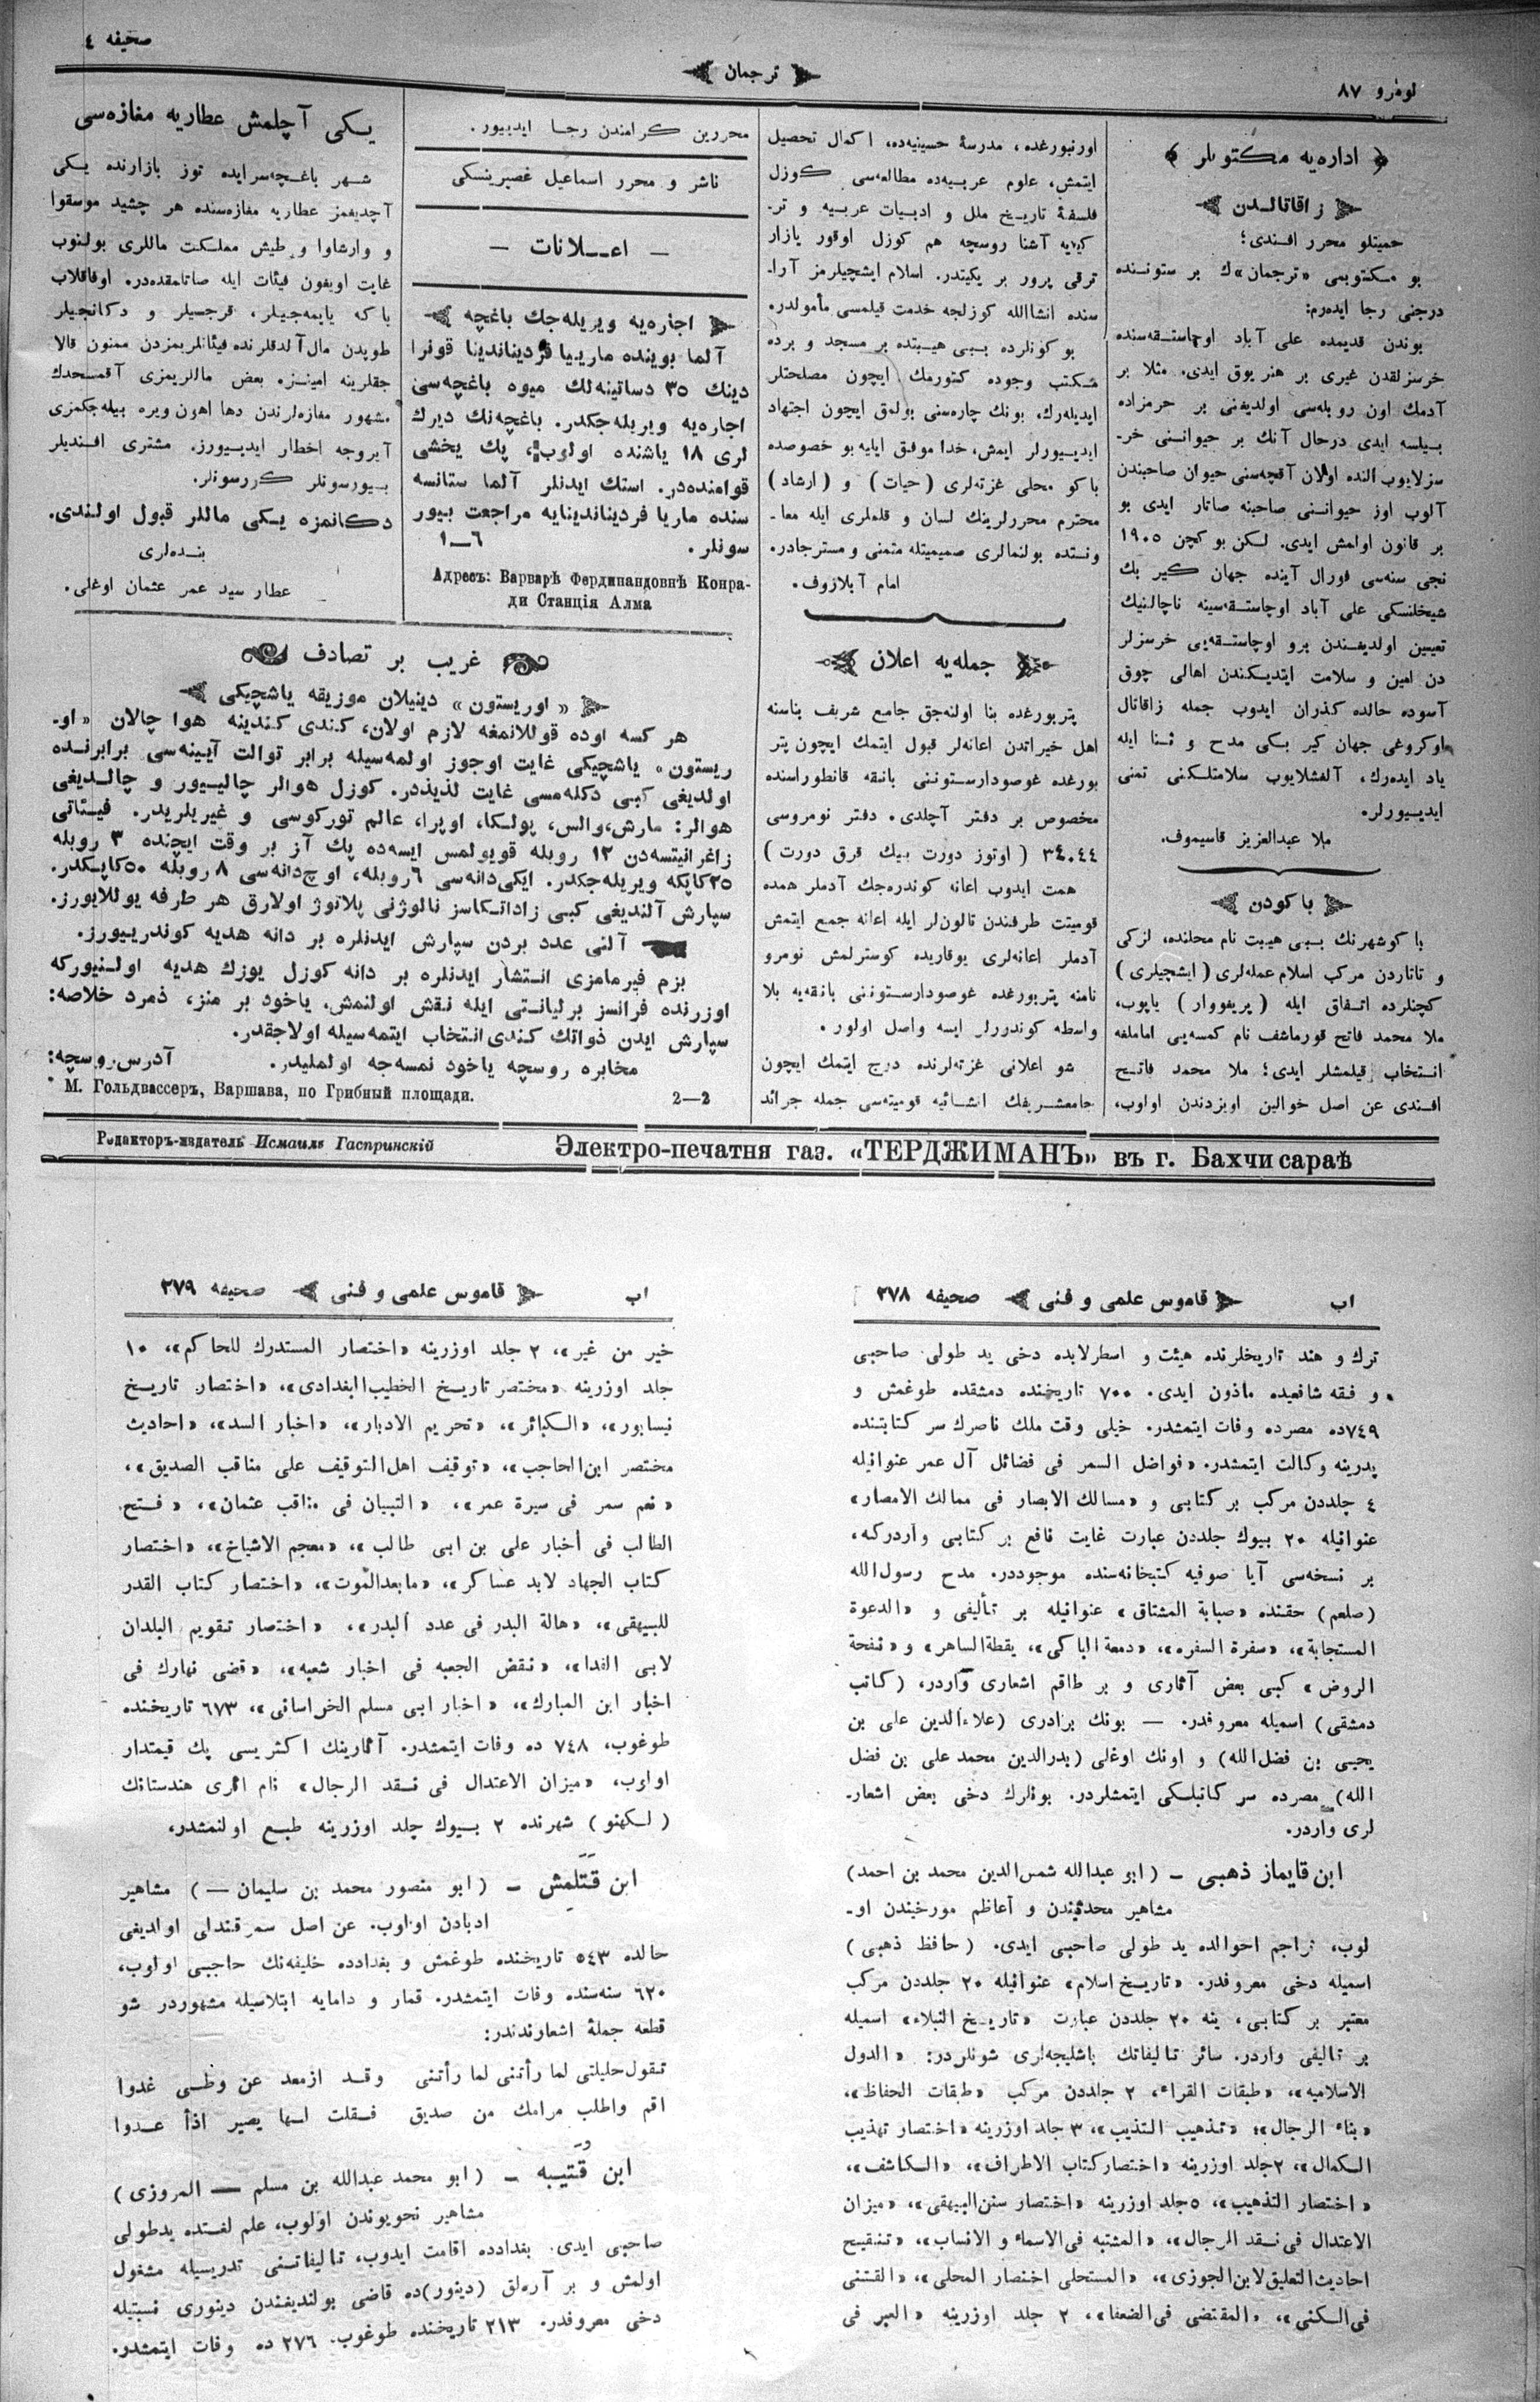 نومرو ٨٧
ترجمان
صحيفه ٤
اداره‌يه مكتوبلر
زاقاتالدن
حميتلو محرر افندى؛
بو مكتوبمى «ترجمان»ك بر ستوننده
درجنى رجا ايدەرم:
بوندن قديمده على آباد اوچاستقه‌سنده
خرسزلقدن غيرى بر هنر يوق ايدى. مثلا بر
آدمك اون روبله‌سى اولديغنى بر حرمزاده
بيلسه ايدى درحال آنك بر حيوانى خر-
سزلايوب النده اولان آقچه‌سنى حيوان صاحبندن
آلوب اوز حيوانى صاحبنه صاتار ايدى بو
بر قانون اولمش ايدى. لكن بو كچن ١٩٠٥
نجى سنه‌سى فورال آينده جهان كير بك
شيخلنسكى على آباد اوچاستقه‌سينه ناچالنيك
تعيين اولديغندن برو اوچاستقه‌يى خرسزلر
دن امين و سلامت ايتديكندن اهالى چوق
آسوده حالده كذران ايدوب جمله زاقاتال
اوكروغى جهان كير بكى مدح و ثنا ايله
ياد ايدەرك، آلقشلايوب سلامتلكنى تمنى
ايديورلر.
ملا عبدالعزيز قاسيموف.
باكودن
باكو شهرنك بيبى هيبت نام محلنده، لزكى
و تاتاردن مركب اسلام عمله‌لرى (ايشچيلرى)
كچنلرده اتفاق ايله (پريغووار) ياپوب،
ملا محمد فاتح قورماشف نام كمسه‌يى اماملغه
انتخاب قيلمشلر ايدى؛ ملا محمد فاتح
افندى عن اصل خوالين اويزدندن اولوب،
اورنبورغده، مدرسهٔ حسينيه‌ده، اكمال تحصيل
ايتمش، علوم عربيه‌ده مطالعه‌سى كوزل
فلسفهٔ تاريخ ملل و ادبيات عربيه و تر-
كيه‌يه آشنا روسچه هم كوزل اوقور يازار
ترقى پرور بر يكيتدر. اسلام ايشچيلرمز آرا-
سنده انشاالله كوزلجه خدمت قيلمسى مأمولدر.
بو كونلرده بيبى هيبتده بر مسجد و برده
مكتب وجوده كتورمك ايچون مصلحتلر
ايديله‌رك، بونك چاره‌سنى بولمق ايچون اجتهاد
ايديورلر ايمش، خدا موفق ايليه بو خصوصده
باكو محلى غزته‌لرى (حيات) و (ارشاد)
محترم محررلرينك لسان و قلملرى ايله معا-
ونتده بولنمالرى صميميتله متمنى و مسترجادر.
امام آبلازوف.
جمله‌يه اعلان
پتربورغده بنا اولنه‌جق جامع شريف بناسنه
اهل خيراتدن اعانه‌لر قبول ايتمك ايچون پتر
بورغده غوصودارستوننى بانقه قانطوراسنده
مخصوص بر دفتر آچلدى. دفتر نومروسى
٣٤٠٤٤ (اوتوز دورت بيك قرق دورت)
همت ايدوب اعانه كوندره‌جك آدملر همده
قوميتت طرفندن تالونلر ايله اعانه جمع ايتمش
آدملر اعانه‌لرى يوقاريده كوسترلمش نومرو
نامنه پتربورغده غوصودارستوننى بانقه‌يه بلا
واسطه كوندرورلر ايسه واصل اولور.
شو اعلانى غزته‌لرنده درج ايتمك ايچون
جامع شريفك انشائيه قوميته‌سى جمله جرائد
محررين كرامندن رجا ايديور.
ناشر و محرر اسماعيل غصپرينسكى
— اعــلانات —
اجاره‌يه ويريله‌جك باغچه
آلما بوينده ماريا فرديناندينا قونرا
دينك ٣٥ دساتينه‌لك ميوه باغچه‌سى
اجاره‌يه ويريله‌جكدر. باغچه‌نك ديرك
لرى ١٨ ياشنده اولوب، پك يخشى
قوامنده‌در. استك ايدنلر آلما ستانسه
سنده ماريا فرديناندينايه مراجعت بيور
سونلر. ٦—١
Адресъ: Варварѣ Фердинандовнѣ Конра-
ди Станція Алма
يكى آچلمش عطاريه مغازه‌سى
شهر باغچه‌سرايده توز بازارنده يكى
آچديغمز عطاريه مغازه‌سنده هر چشيد موسقوا
و وارشاوا و طيش مملكت ماللرى بولنوب
غايت اويغون فيئات ايله صاتلمقده‌در. اوفاقلاب
باكه يايمه‌جيلر، قرجيلر و دكانجيلر
طويدن مال آلدقلرنده فيئاتلريمزدن ممنون قالا
جقلرينه امينز. بعض ماللريمزى آقمسجدك
مشهور مغازه‌لرندن دها اهون ويره بيله‌جكمزى
آيروجه اخطار ايديورز. مشترى افنديلر
بيورسونلر كورسونلر.
دكانمزه يكى ماللر قبول اولندى.
بنده‌لرى
عطار سيد عمر عثمان اوغلى.
غريب بر تصادف
«اوريستون» دينيلان موزيقه ياشچيكى
هر كسه اوده قوللانمغه لازم اولان، كندى كندينه هوا چالان «او-
ريستون» ياشچيكى غايت اوجوز اولمه‌سيله برابر توالت آيينه‌سى برابرنده
اولديغى كبى دكله‌مسى غايت لذيذدر. كوزل هوالر چاليور و چالديغى
هوالر: مارش، والس، پولكا، اوپرا، عالم توركوسى و غيريلريدر. فيئاتى
زاغرانيتسه‌دن ١٢ روبله قويولمس ايسه‌ده پك آز بر وقت ايچنده ٣ روبله
٢٥ كاپكه ويريله‌جكدر. ايكى دانه‌سى ٦ روبله، اوچ دانه‌سى ٨ روبله ٥٠ كاپكدر.
سپارش آلنديغى كبى زاداتكاسز نالوژنى پلاتوژ اولارق هر طرفه يوللايورز.
آلتى عدد بردن سپارش ايدنلره بر دانه هديه كوندرييورز.
بزم فيرمامزى انتشار ايدنلره بر دانه كوزل يوزك هديه اولنيوركه
اوزرنده فرانسز برليانتى ايله نقش اولنمش، ياخود بر منز، ذمرد خلاصه:
سپارش ايدن ذواتك كندى انتخاب ايتمه‌سيله اولاجقدر.
مخابره روسچه ياخود نمسه‌جه اولمليدر. آدرس روسچه:
М. Гольдвассеръ, Варшава, по Грибный площади. 2—2
Редакторъ-издатель Исмаилъ Гаспринскій
Электро-печатня газ. «ТЕРДЖИМАНЪ» въ г. Бахчисараѣ
اب قاموس علمى و فنى صحيفه ٣٧٨
ترك و هند تاريخلرنده هيئت و اسطرلابده دخى يد طولى صاحبى
و فقه شافعيده مأذون ايدى. ٧٠٠ تاريخنده دمشقده طوغمش و
٧٤٩ده مصرده وفات ايتمشدر. خيلى وقت ملك ناصرك سر كتابتنده
پدرينه وكالت ايتمشدر. «فواضل السمر فى فضائل آل عمر عنوانيله
٤ جلددن مركب بر كتابى و «مسالك الابصار فى ممالك الامصار»
عنوانيله ٢٠ بيوك جلددن عبارت غايت نافع بر كتابى واردركه،
بر نسخه‌سى آيا صوفيه كتبخانه‌سنده موجوددر. مدح رسول الله
(صلعم) حقنده «صبابة المشتاق» عنوانيله بر تأليفى و «الدعوة
المستجابة»، «سفرة السفره»، «دمعة الباكى»، يقظة الساهر» و «نفحة
الروض» كبى بعض آثارى و بر طاقم اشعارى واردر، (كاتب
دمشقى) اسميله معروفدر. — بونك برادرى (علاءالدين على بن
يحيى بن فضل الله) و اونك اوغلى (بدرالدين محمد على بن فضل
الله) مصرده سر كاتبلكى ايتمشلردر. بونلرك دخى بعض اشعار-
لرى واردر.
ابن قايماز ذهبى – (ابو عبدالله شمس الدين محمد بن احمد)
مشاهير محدثيندن و اعاظم مورخيندن او-
لوب، تراجم احوالده يد طولى صاحبى ايدى. (حافظ ذهبى)
اسميله دخى معروفدر. «تاريخ اسلام» عنوانيله ٢٠ جلددن مركب
معتبر بر كتابى، ينه ٢٠ جلددن عبارت «تاريخ النبلاء» اسميله
بر تاليفى واردر. سائر تاليفاتك باشليجه‌لرى شونلردر: «الدول
الاسلاميه»، «طبقات القراء، ٢ جلددن مركب «طبقات الحفاظ»،
«بناء الرجال»؛ «تذهيب التذيب»، ٣ جلد اوزرينه «اختصار تهذيب
الكمال»، ٢ جلد اوزرينه «اختصار كتاب الاطراف»، «الكاشف»،
«اختصار التذهيب»، ٥ جلد اوزرينه «اختصار سنن البيهقى»، «ميزان
الاعتدال فى نقد الرجال»، «المشتبه فى الاسماء و الانساب»، «تنقيح
احاديث التعليق لابن الجوزى»، «المستحلى اختصار المحلى»، «القتنى
فى الكنى»، «المقتضى فى الضعفا»، ٢ جلد اوزرينه «العبر فى
اب قاموس علمى و فنى صحيفه ٣٧٩
خير من غبر»، ٢ جلد اوزرينه «اختصار المستدرك للحاكم»، ١٠
جلد اوزرينه «مختصر تاريخ الخطيب البغدادى»، «اختصار تاريخ
نيسابور»، «الكبائر»، «تحريم الادبار»، «اخبار السد»، «احاديث
مختصر ابن الحاجب»، «توقيف اهل التوقيف على مناقب الصديق»،
«نعم سمر فى سيرة عمر»، «التبيان فى مناقب عثمان»، «فتح
الطالب فى أخبار على بن ابى طالب»، «معجم الاشياخ»، «اختصار
كتاب الجهاد لابد عساكر»، «مابعد الموت»، «اختصار كتاب القدر
للبيهقى»، «هالة البدر فى عدد البدر»، «اختصار تقويم البلدان
لابى الفدا»، «نقض الجعبه فى اخبار شعبه»، «قضى نهارك فى
اخبار ابن المبارك»، «اخبار ابى مسلم الخراسانى»، ٦٧٣ تاريخنده
طوغوب، ٧٤٨ ده وفات ايتمشدر. آثارينك اكثريسى پك قيمتدار
اولوب، «ميزان الاعتدال فى نقد الرجال» نام اثرى هندستانك
(لكهنو) شهرنده ٢ بيوك جلد اوزرينه طبع اولنمشدر،
ابن قتلمش – (ابو منصور محمد بن سليمان —) مشاهير
ادبادن اولوب. عن اصل سمرقندلى اولديغى
حالده ٥٤٣ تاريخنده طوغمش و بغدادده خليفه‌نك حاجبى اولوب،
٦٢٠ سنه‌سنده وفات ايتمشدر. قمار و دامايه ابتلاسيله مشهوردر شو
قطعه جملهٔ اشعارندندر:
تقول حليلتى لما رأتنى لما رأتنى وقد ازمعد عن وطنى غدوا
اقم واطلب مرامك من صديق فقلت لها يصير اذأ عدوا
ابن قتيبه – (ابو محمد عبدالله بن مسلم — المروزى)
مشاهير نحويوندن اولوب، علم لغتده يدطولى
صاحبى ايدى. بغدادده اقامت ايدوب، تاليفاتنى تدريسيله مشغول
اولمش و بر آره‌لق (دينور)ده قاضى بولنديغندن دينورى نسبتيله
دخى معروفدر. ٢١٣ تاريخنده طوغوب. ٢٧٦ ده وفات ايتمشدر.